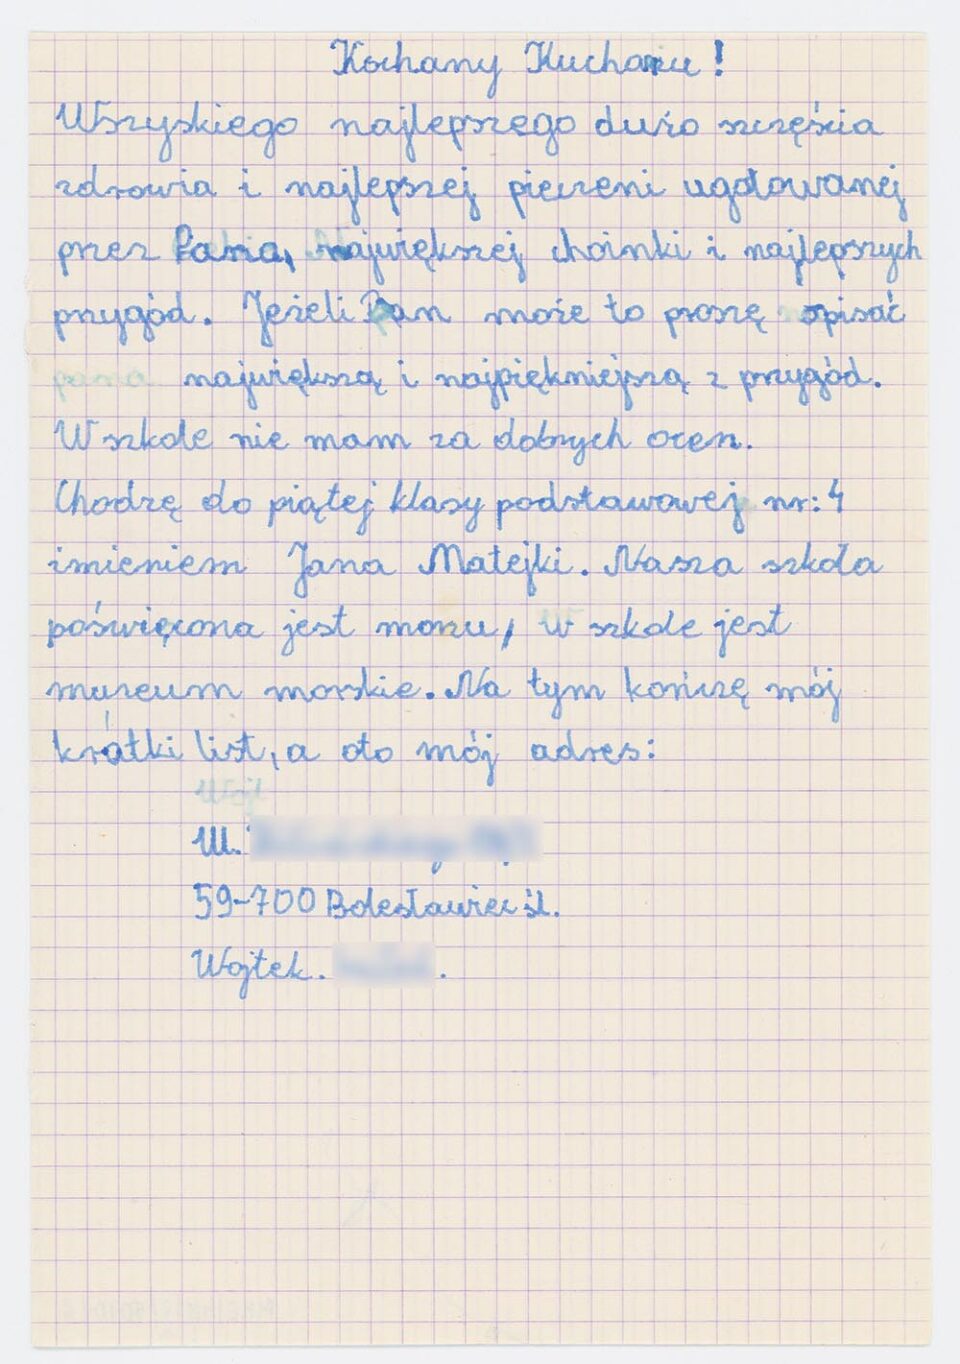 Kochany Kucharzu!
Wszyskiego najlepszego dużo szczęścia
zdrowia i najlepszej pieczeni ugotowanej
przez Pana, największej choinki i najlepszych
przygód. Jeżeli Pan może to proszę opisać
największą i najpiękniejszą z przygód.
W szkole nie mam za dobrych ocen.
Chodzę do piątej klasy podstawowej nr: 4
imieniem Jana Matejki. Nasza szkoła
poświęcona jest morzu, W szkole jest
muzeum morskie. Na tym kończę mój
krótki list, a oto mój adres:
Ul.
59-700 Bolesławiec śl.
Wojtek.